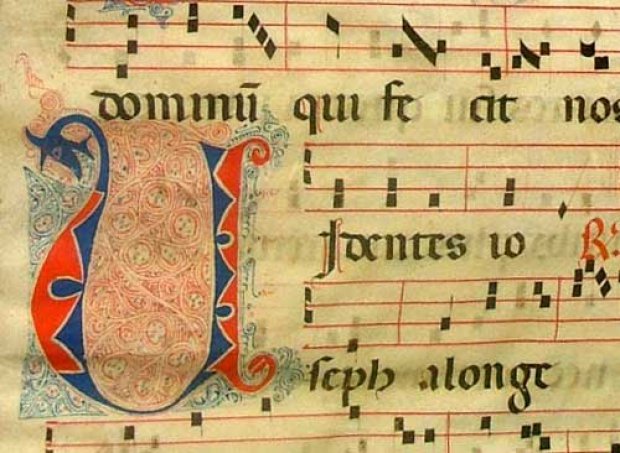 dominū qui fe cit nos
Videntes io R:
seph alonge